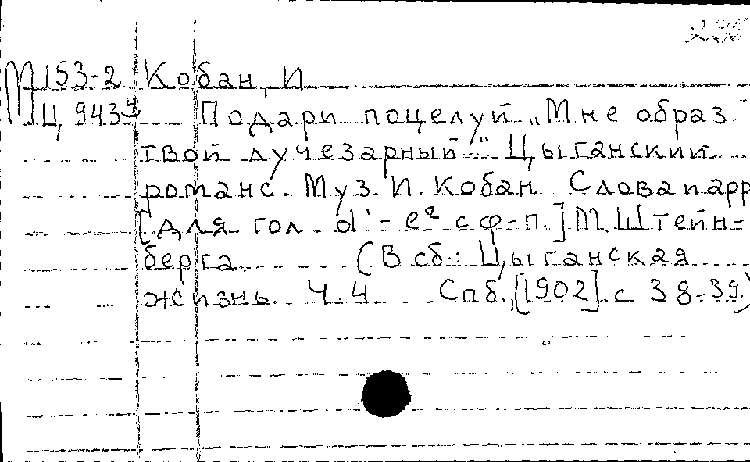 М153-2 Кобан, И
Ц 943-4 Подари поцелуй „Мне образ
твой лучезарный". Цыганский
романс. Муз. И. Кобан. Слова и арр
[Для гол. d¹-e² с ф-п.] М. Штейн-
берга. (В сб.: Цыганская
жизнь. Ч. 4 Спб, [1902]. с 38-39)